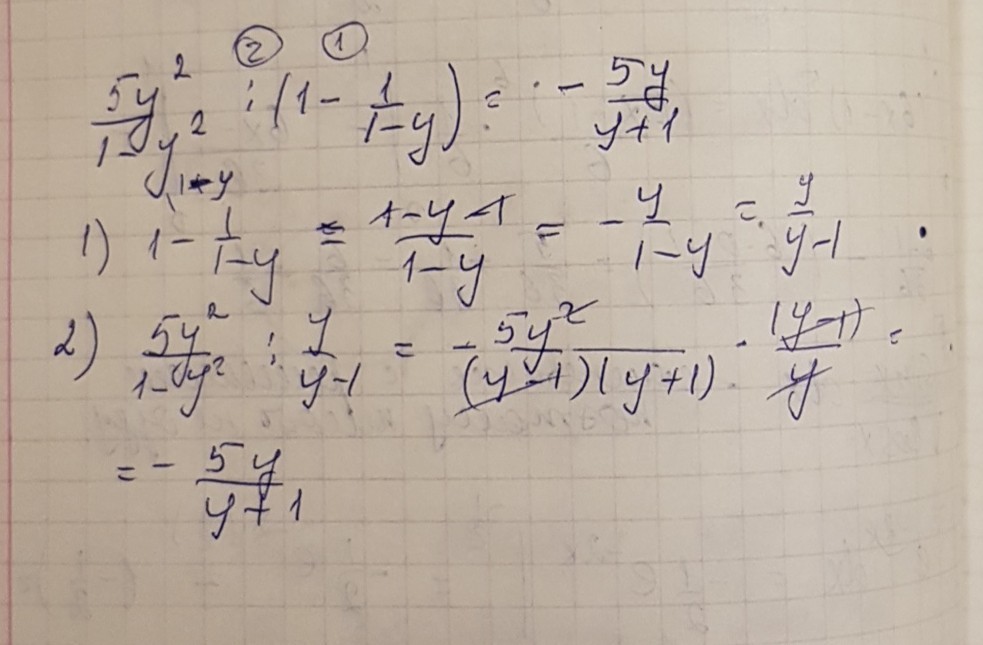 ② ①
5y²/1-y² : (1 - 1/1-y) = - 5y/y+1
1+y
1) 1 - 1/1-y = 1-y-1/1-y = - y/1-y = y/y-1
2) 5y²/1-y² : y/y-1 = - 5y²/(y-1)(y+1) · (y-1)/y =
= - 5y/y+1